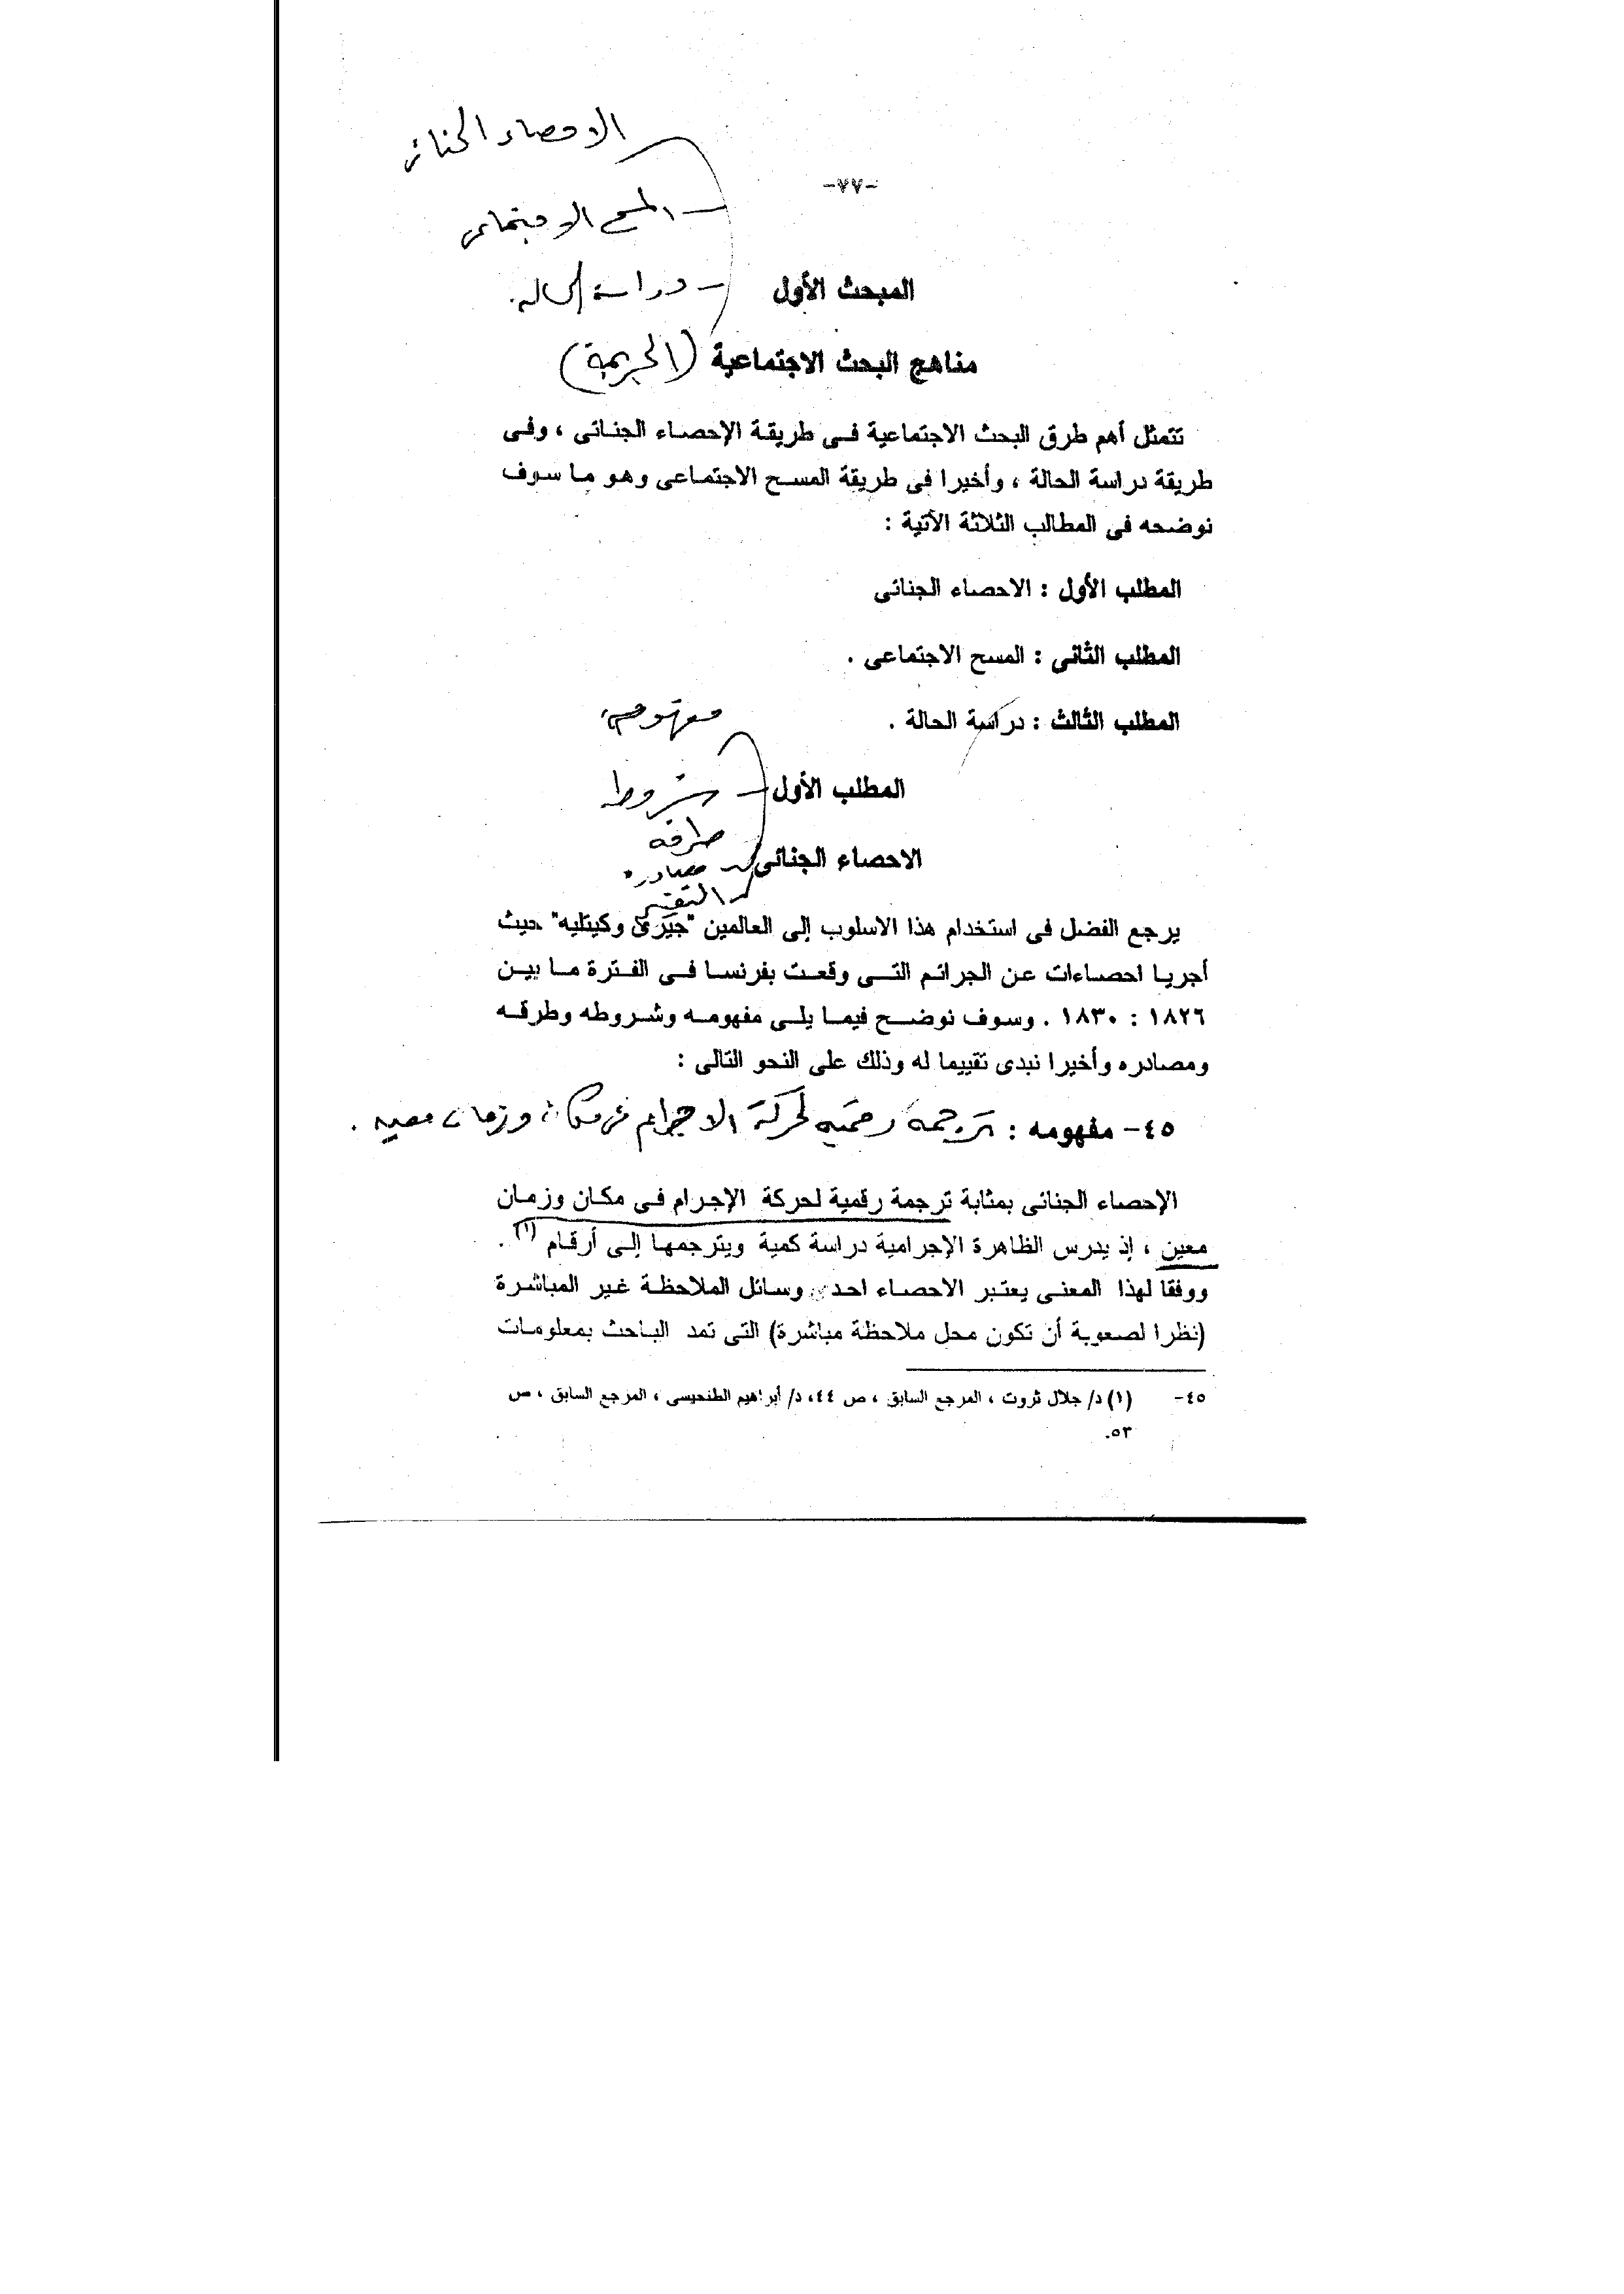 الاحصاء الجنائى
-٧٧-
– المسح الاجتماعى
– دراسة الحاله.
المبحث الأول
مناهج البحث الاجتماعية (الجريمة)
تتمثل أهم طرق البحث الاجتماعية فى طريقة الإحصاء الجنائى ، وفى
طريقة دراسة الحالة ، وأخيرا فى طريقة المسح الاجتماعى وهو ما سوف
نوضحه فى المطالب الثلاثة الآتية :
المطلب الأول : الاحصاء الجنائى
المطلب الثانى : المسح الاجتماعى .
المطلب الثالث : دراسة الحالة .
مفهومه
المطلب الأول
– شروطه
طرقه
الاحصاء الجنائى
مصادره
التقييم
يرجع الفضل فى استخدام هذا الاسلوب إلى العالمين "جيرى وكيتليه" حيث
أجريا احصاءات عن الجرائم التى وقعت بفرنسا فى الفترة ما بين
١٨٢٦ : ١٨٣٠ . وسوف نوضح فيما يلى مفهومه وشروطه وطرقه
ومصادره وأخيرا نبدى تقييما له وذلك على النحو التالى :
٤٥- مفهومه : ترجمة رقمية لحركة الاجرام فى مكان وزمان معين .
الإحصاء الجنائى بمثابة ترجمة رقمية لحركة الإجرام فى مكان وزمان
معين ، إذ يدرس الظاهرة الإجرامية دراسة كمية ويترجمها إلى أرقام (١) .
ووفقا لهذا المعنى يعتبر الاحصاء احدى وسائل الملاحظة غير المباشرة
(نظرا لصعوبة أن تكون محل ملاحظة مباشرة) التى تمد الباحث بمعلومات
٤٥- (١) د/ جلال ثروت ، المرجع السابق ، ص ٤٤، د/ أبراهيم الطنحيسى ، المرجع السابق ، ص
٥٣.